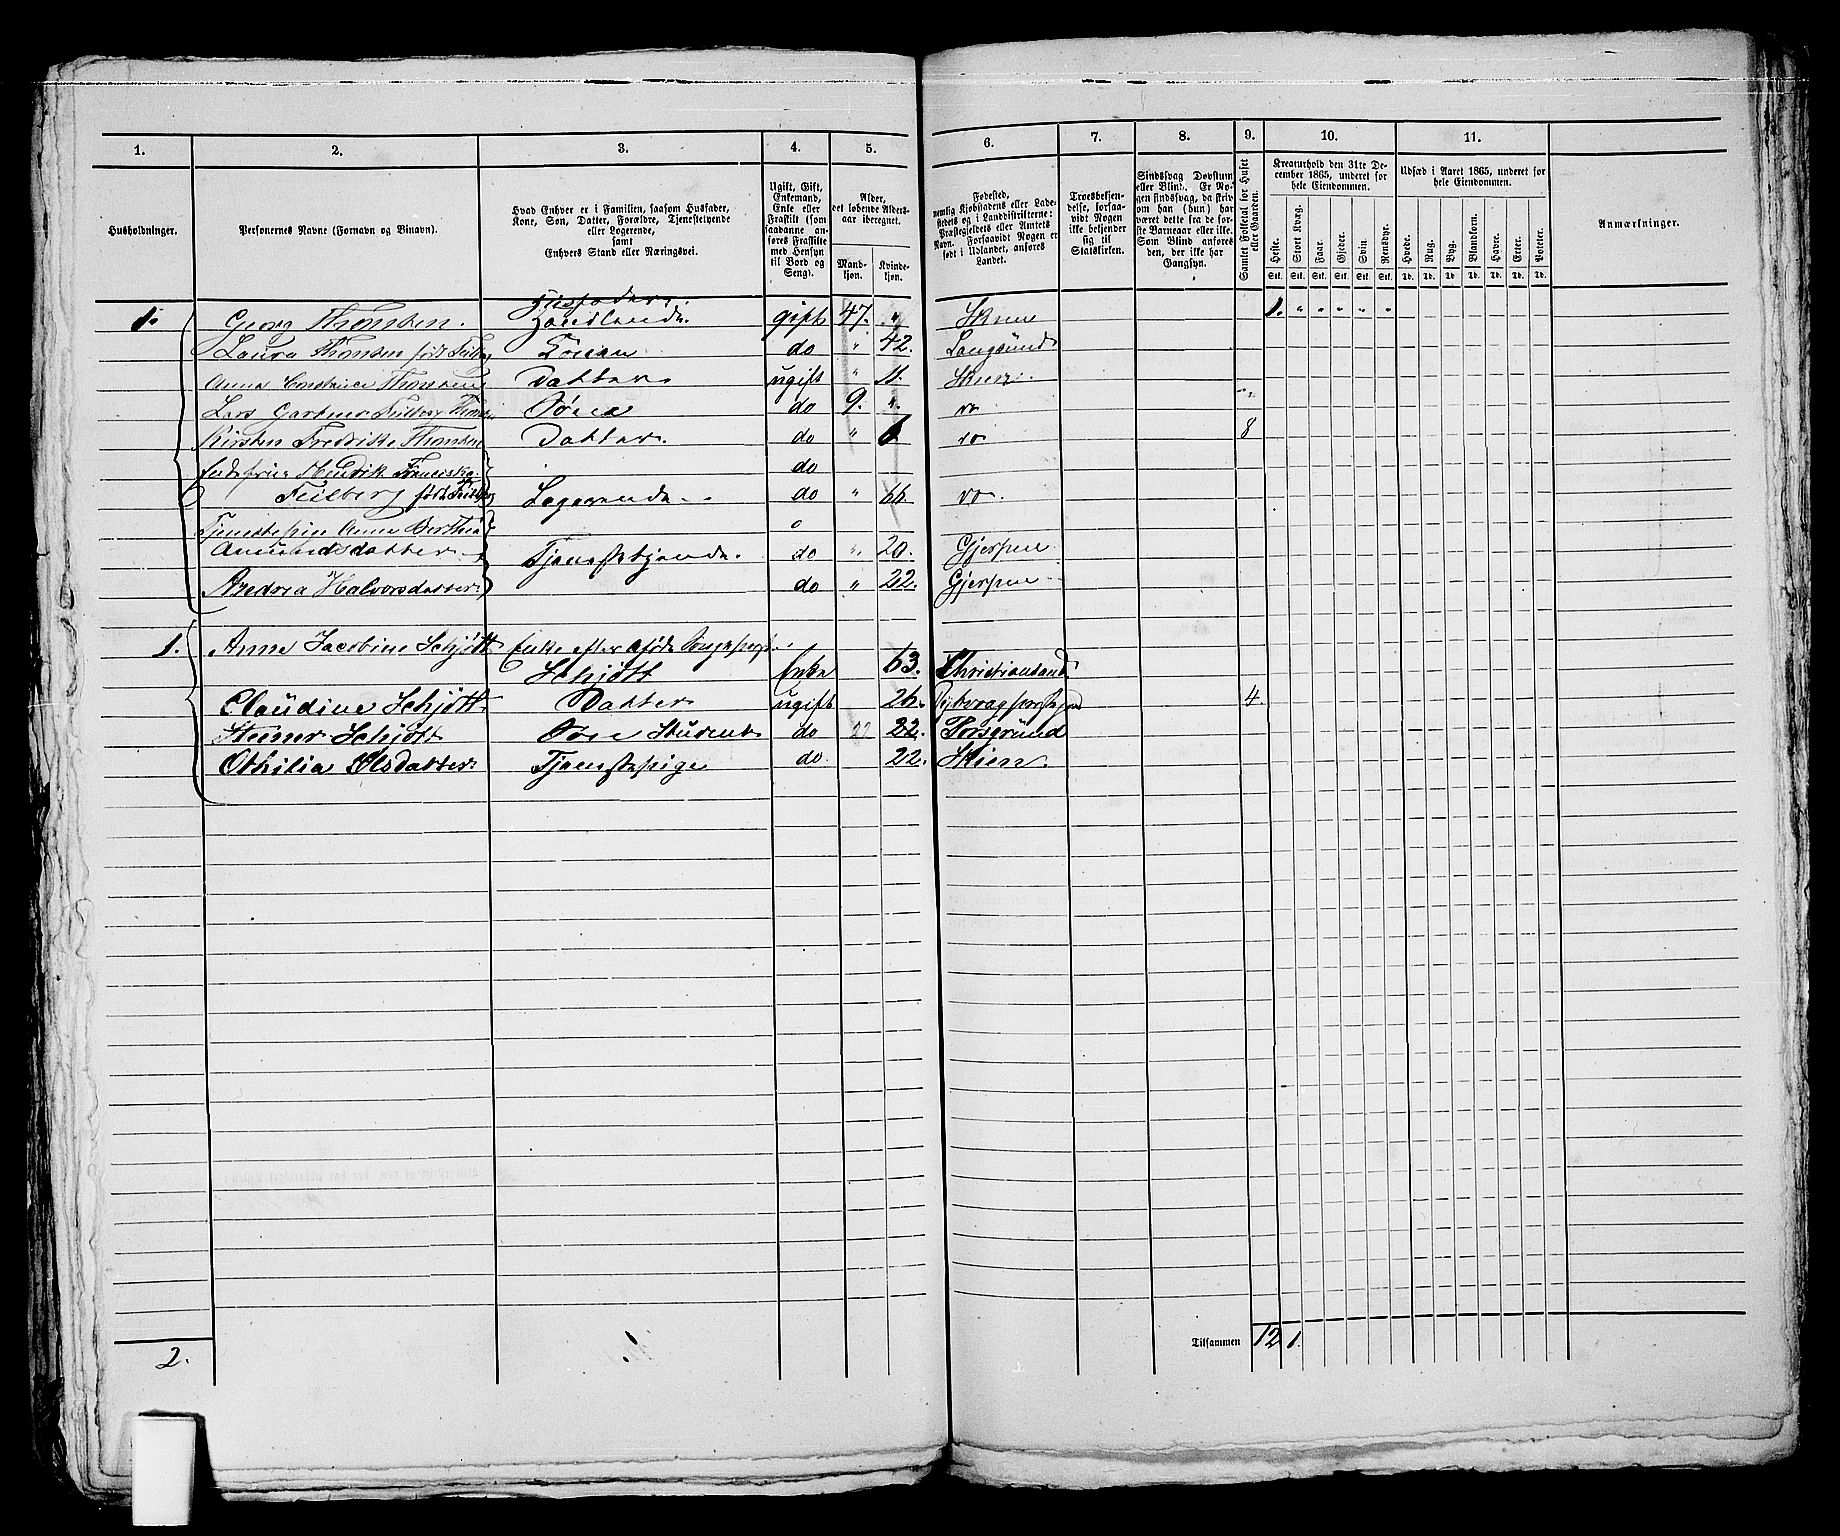 1. 2. 3. 4. 5. 6. 7. 8. 9. 10. 11.
Husholdninger.
Personernes Navne (Fornavn og Binavn).
Hvad Enhver er i Familien, saasom Husfader,
Kone, Søn, Datter, Forældre, Tjenestetyende
eller Logerende,
samt
Enhvers Stand eller Næringsvei.
Ugift, Gift,
Enkemand,
Enke eller
Fraskilt (som
saadanne an-
føres Fraskilte
med Hensyn
til Bord og
Seng).
Alder,
det løbende Alders-
aar iberegnet.
Mand-
kjøn.
Kvinde-
kjøn.
Fødested,
nemlig Kjøbstadens eller Lade-
stedets og i Landdistrikterne:
Præstegjeldets eller Amtets
Navn. Forsaavidt Nogen er
født i Udlandet, anføres
Landet.
Troesbekjen-
delse, forsaa-
vidt Nogen
ikke bekjender
sig til
Statskirken.
Sindssvag Døvstum
eller Blind. Er No-
gen sindssvag, da skriv
som han (hun) har
været dette fra de før-
ste Barneaar eller ikke.
Som Blind anføres
den, der ikke har
Gangsyn.
Samlet Folketal for Huset
eller Gaarden.
Kreaturhold den 31te De-
cember 1865, underet for
hele Eiendommen.
Heste. Stort Kvæg. Faar. Gjeder. Svin. Rensdyr.
Stk. Stk. Stk. Stk. Stk. Stk.
Udsæd i Aaret 1865, underet for
hele Eiendommen.
Hvede. Rug. Byg. Blandkorn. Havre. Erter. Poteter.
Td. Td. Td. Td. Td. Td. Td.
Anmærkninger.
1. Georg Thomsen. Husfader. Handlende. gift 47. " 1. " " " " "
Laura Thomsen født Feilberg do " 42. Langesund
Anna Thomsen Datter ugift " 11.
Lars Gartner Feilberg Thomsen Søn do 9. "
Kirsten Fredrikke Thomsen Datter. do " 8
Hendrik Franciska do
Feilberg født Feilberg Logerende do " 66
Tjenestepige Anne Berthe
Amundsdatter Tjenestetyende. do " 20. Gjerpen
Andrea Halvorsdatter do " 22. Gjerpen
1. Anne Jacobine Schjøtt Enke efter afdøde Sorgepræst
Schjøtt Enke 63. Christiansand
Claudine Schjøtt Datter ugift 26. 4.
Schjøtt Søn Student do 22 22. Porsgrund
Othilia Olsdatter Tjenestepige do. 22. Skien.
2.
Tilsammen 12 1.